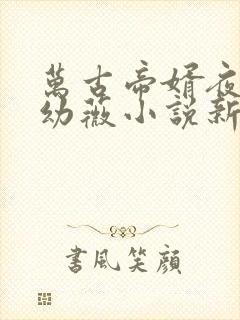 萬古帝婿夜
幼薇小說新
書風笑顏